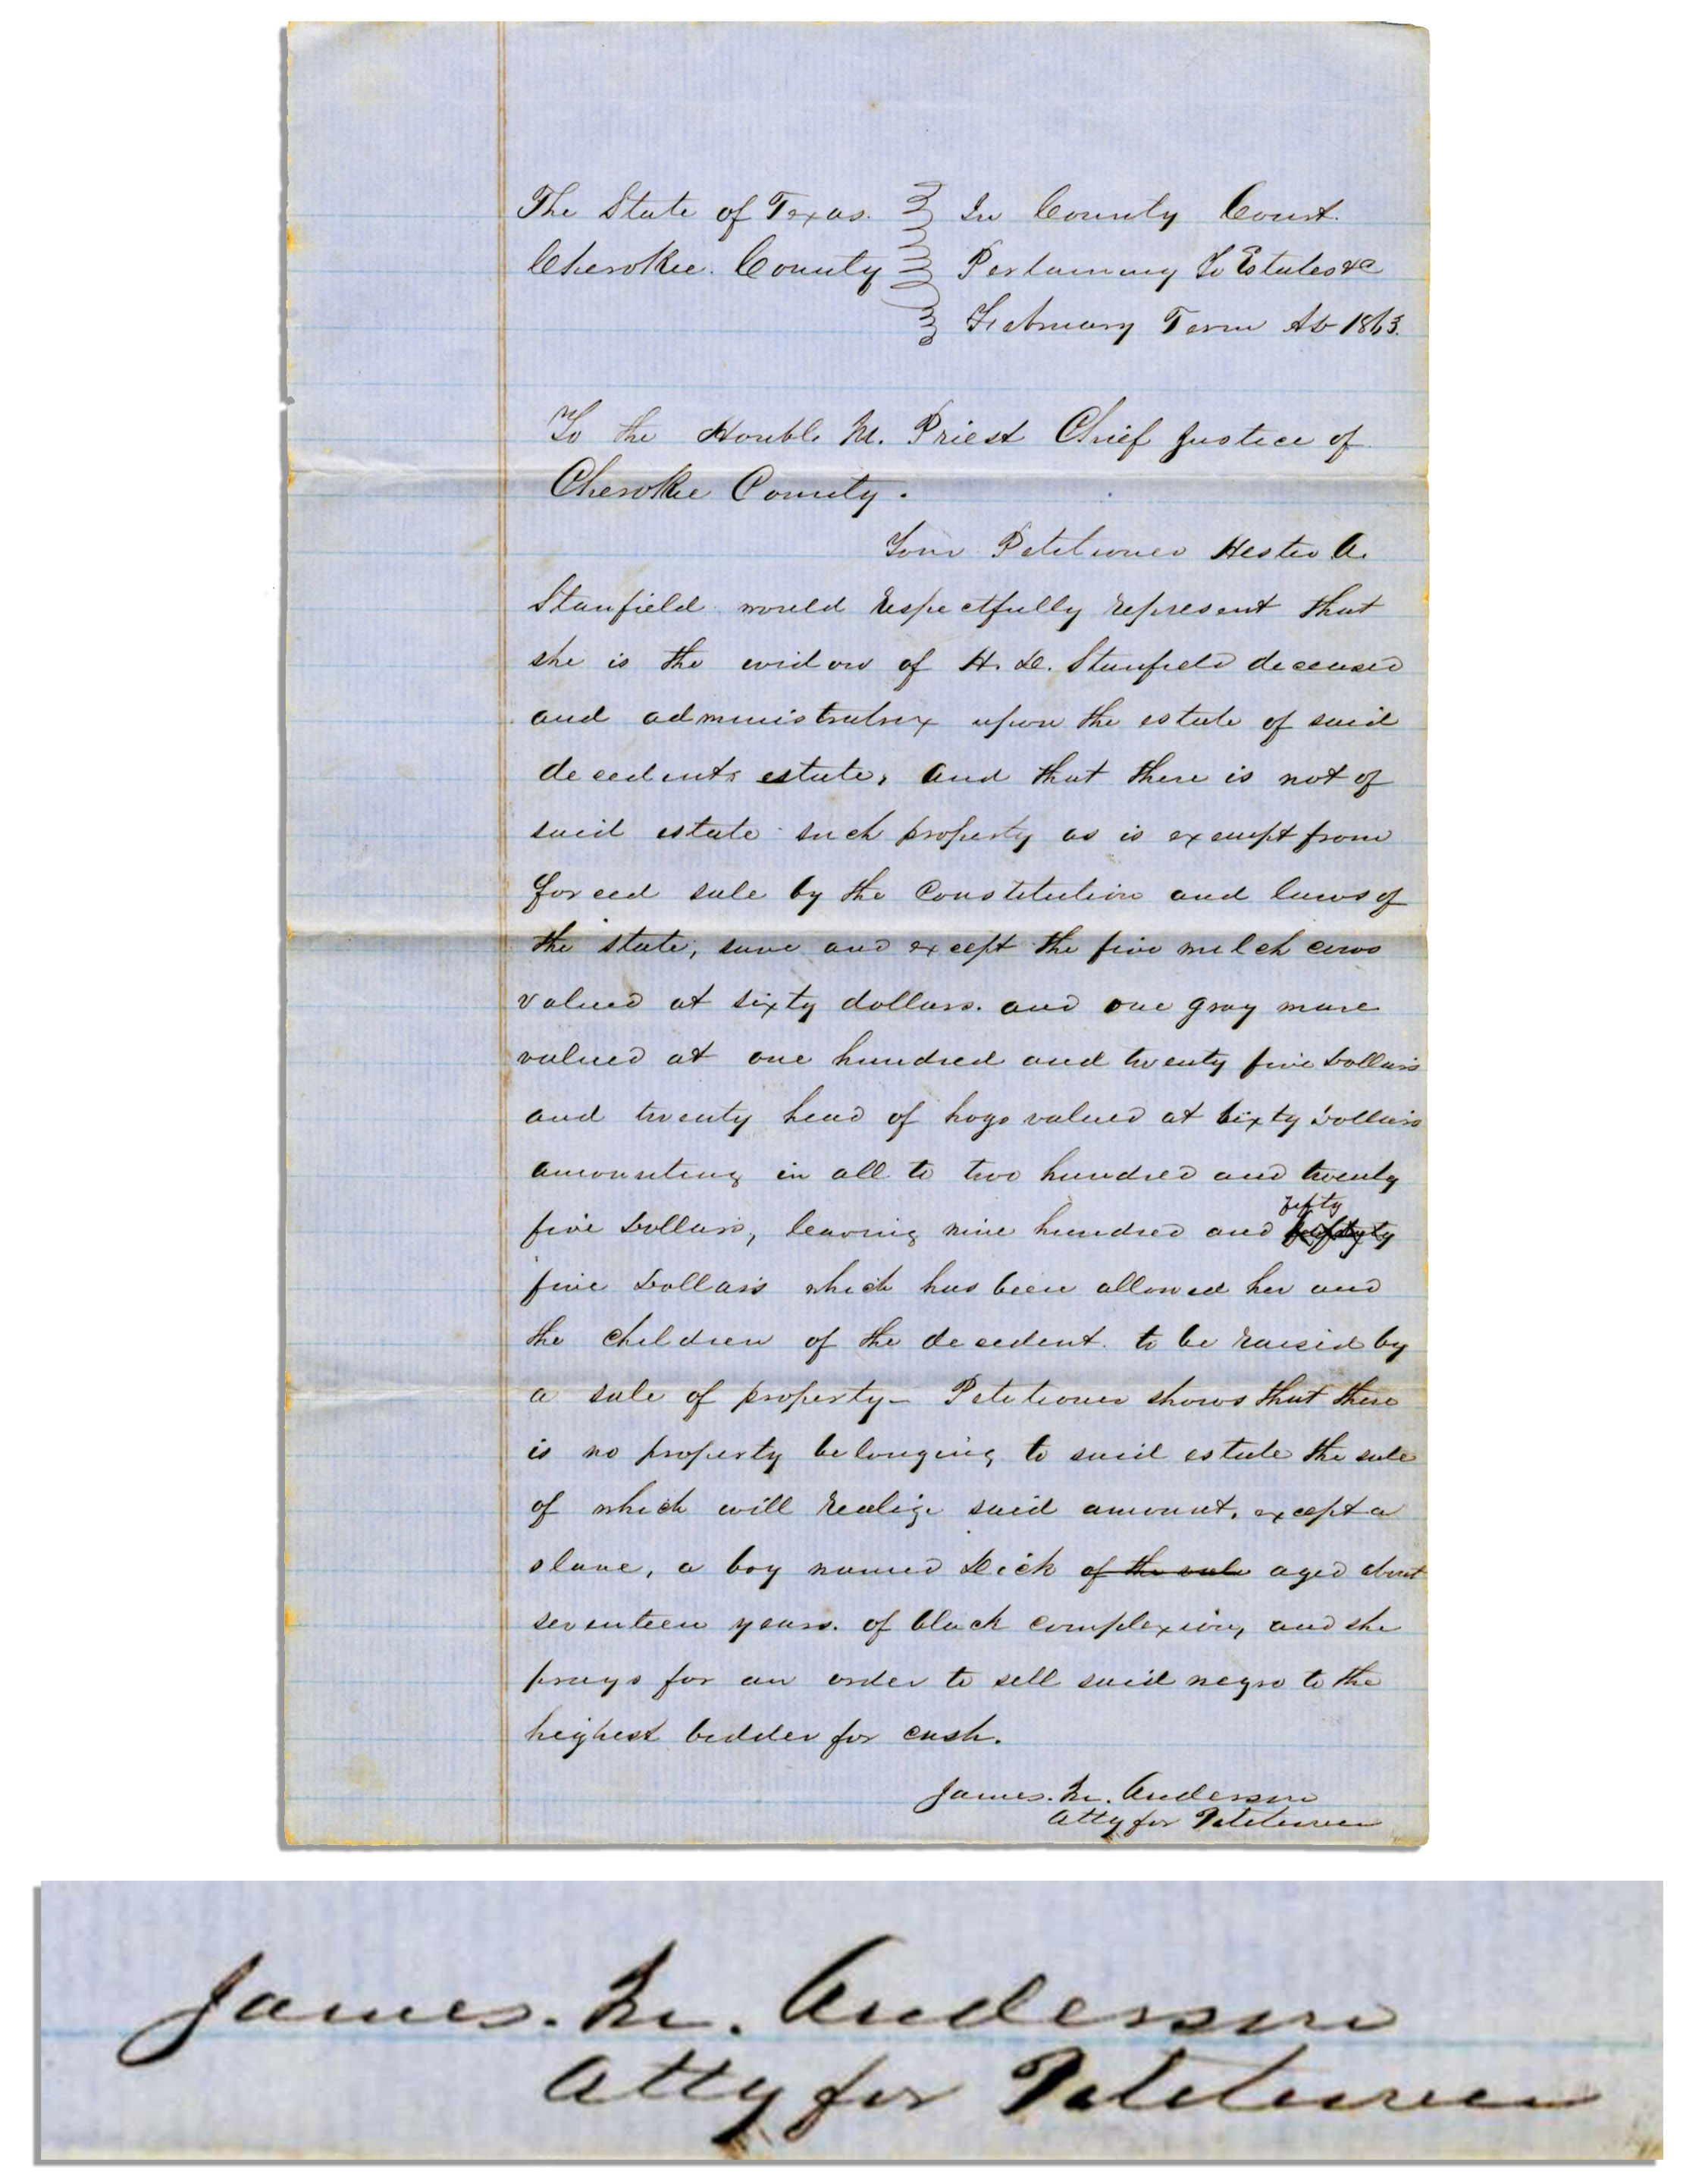 The State of Texas. In County Court.
Cherokee. County Pertaining To Estates &c
February Term AD 1863.
To the Honble M. Priest Chief Justice of
Cherokee County.
Your Petitioner Hester A.
Stanfield would respectfully represent that
she is the widow of H. D. Stanfield deceased
and administratrix upon the estate of said
decedents estate, and that there is not of
said estate such property as is exempt from
forced sale by the Constitution and laws of
the state, save and except the five milch cows
valued at sixty dollars. and one gray mare
valued at one hundred and twenty five Dollars
and twenty head of hogs valued at sixty Dollars
amounting in all to two hundred and twenty
five Dollars, leaving nine hundred and fifty
five Dollars which has been allowed her and
the children of the decedent. to be raised by
a sale of property - Petitioner shows that there
is no property belonging to said estate the sale
of which will realize said amount, except a
slave, a boy named Dick of the sale aged about
seventeen years. of black complexion, and she
prays for an order to sell said negro to the
highest bidder for cash.
James. M. Anderson
Atty for Petitioner
James. M. Anderson
Atty for Petitioner